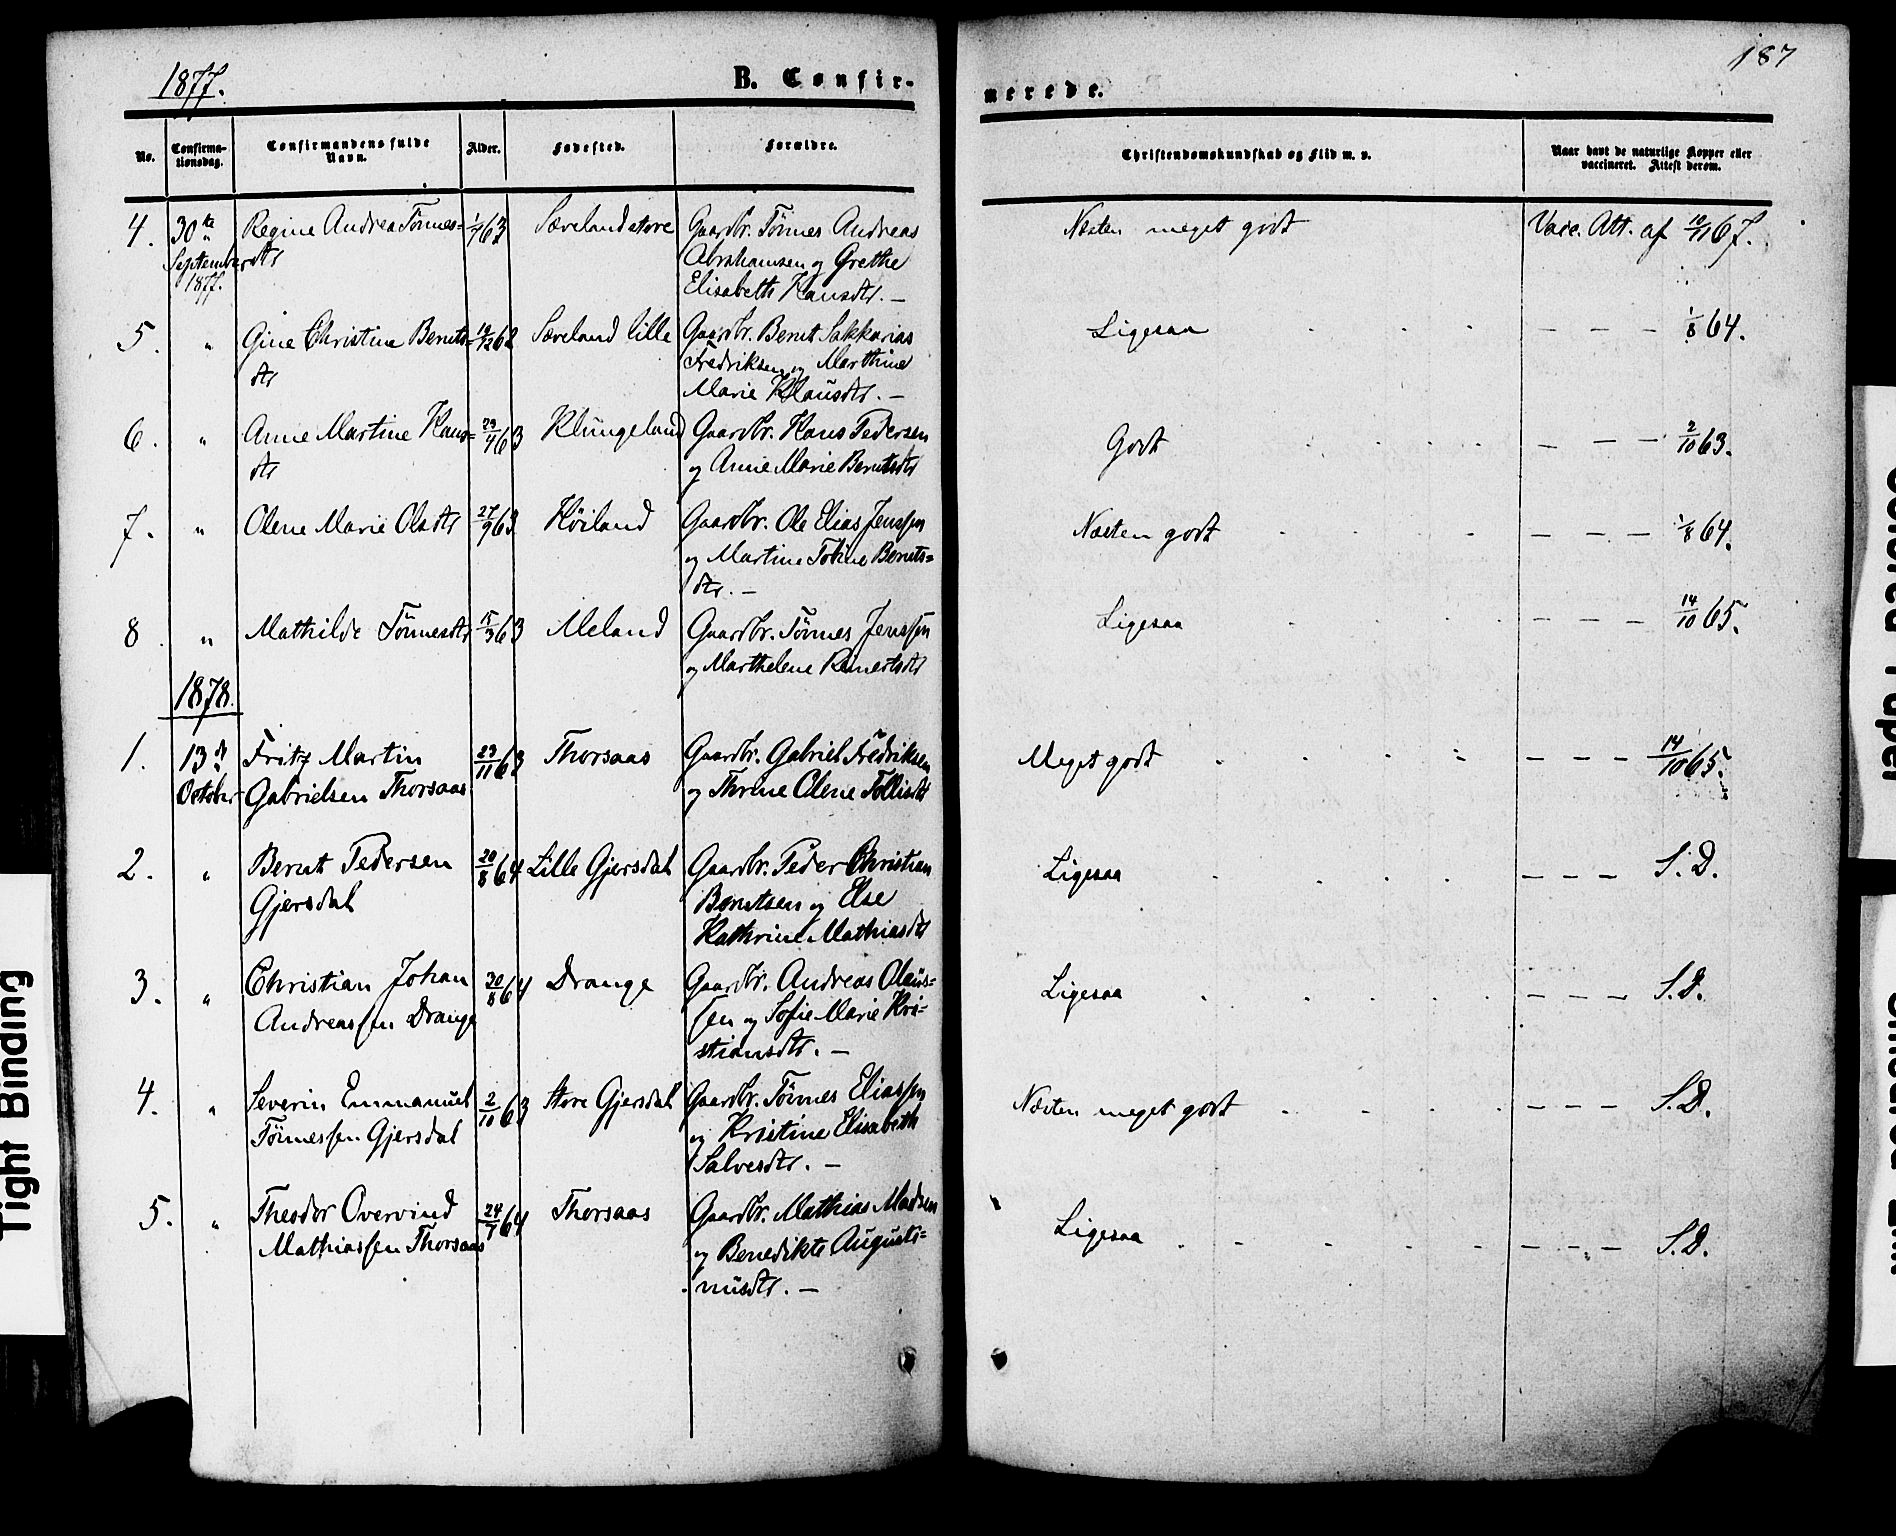 1877.
B. Confir-
No.
Confirma-
tionsdag.
Confirmandens fulde
Navn.
Alder.
Fødested.
Forældre.
4.
30te
September
1877.
Regine Andrea Tønnes=
dtr
63
Sæveland store
Gaardbr. Tønnes Andreas
Abrahamsen og Grethe
Elisabeth Hansdtr. —
5.
"
Gine Christine Bernts=
dtr
19/12 62
Sæveland lille
Gaardbr. Bernt Sakkarias
Fredriksen og Marthine
Marie Klausdtr. —
6.
"
Anne Martine Hans=
dtr
23/4 63
Klungeland
Gaardbr. Hans Pedersen
og Anne Marie Berntsdtr
7.
"
Olene Marie Olsdtr
27/9 63
Høiland
Gaardbr. Ole Elias Jenssen
og Martine Tobine Bernts=
dtr. —
8.
"
Mathilde Tönnesdtr
15/3 63
Meland
Gaardbr. Tönnes Jenssen
og Marthelene Reinertsdtr
1878.
1.
13de
October
Fritz Martin
Gabrielsen Thorsaas
23/11 63
Thorsaas
Gaardbr. Gabriel Fredriksen
og Thrine Olene Tollisdtr
2.
"
Bernt Pedersen
Gjersdal
20/8 64
Lille Gjersdal
Gaardbr. Peder Christian
Berntsen og Else
Kathrine Mathiasdtr
3.
"
Christian Johan
Andreassen Drange
30/8 64
Drange
Gaardbr. Andreas Olaus=
sen og Sofie Marie Kri=
stiansdtr. —
4.
"
Severin Emmanuel
Tönnessen Gjersdal
2/10 63
Store Gjersdal
Gaardbr. Tönnes Eliassen
og Kristine Elisabeth
Salvesdtr. —
5.
"
Theodor Overvind
Mathiassen Thorsaas
24/7 64
Thorsaas
Gaardbr. Mathias Madsen
og Benedikte Augusti=
nusdtr. —
187
merede.
Christendomskundskab og Flid m. v.
Naar havt de naturlige Kopper eller
vaccineret. Attest derom.
Næsten meget godt
Vacc. Att. af 10/11 67.
Ligesaa
— — — 1/8 64.
Godt
— — — 2/10 63.
Næsten godt
— — — 1/8 64.
Ligesaa
— — — 14/10 65.
Meget godt
— — — 14/10 65.
Ligesaa
— — — S.D.
Ligesaa
— — — S.D.
Næsten meget godt
— — — S.D.
Ligesaa
— — — S.D.
Tight Binding